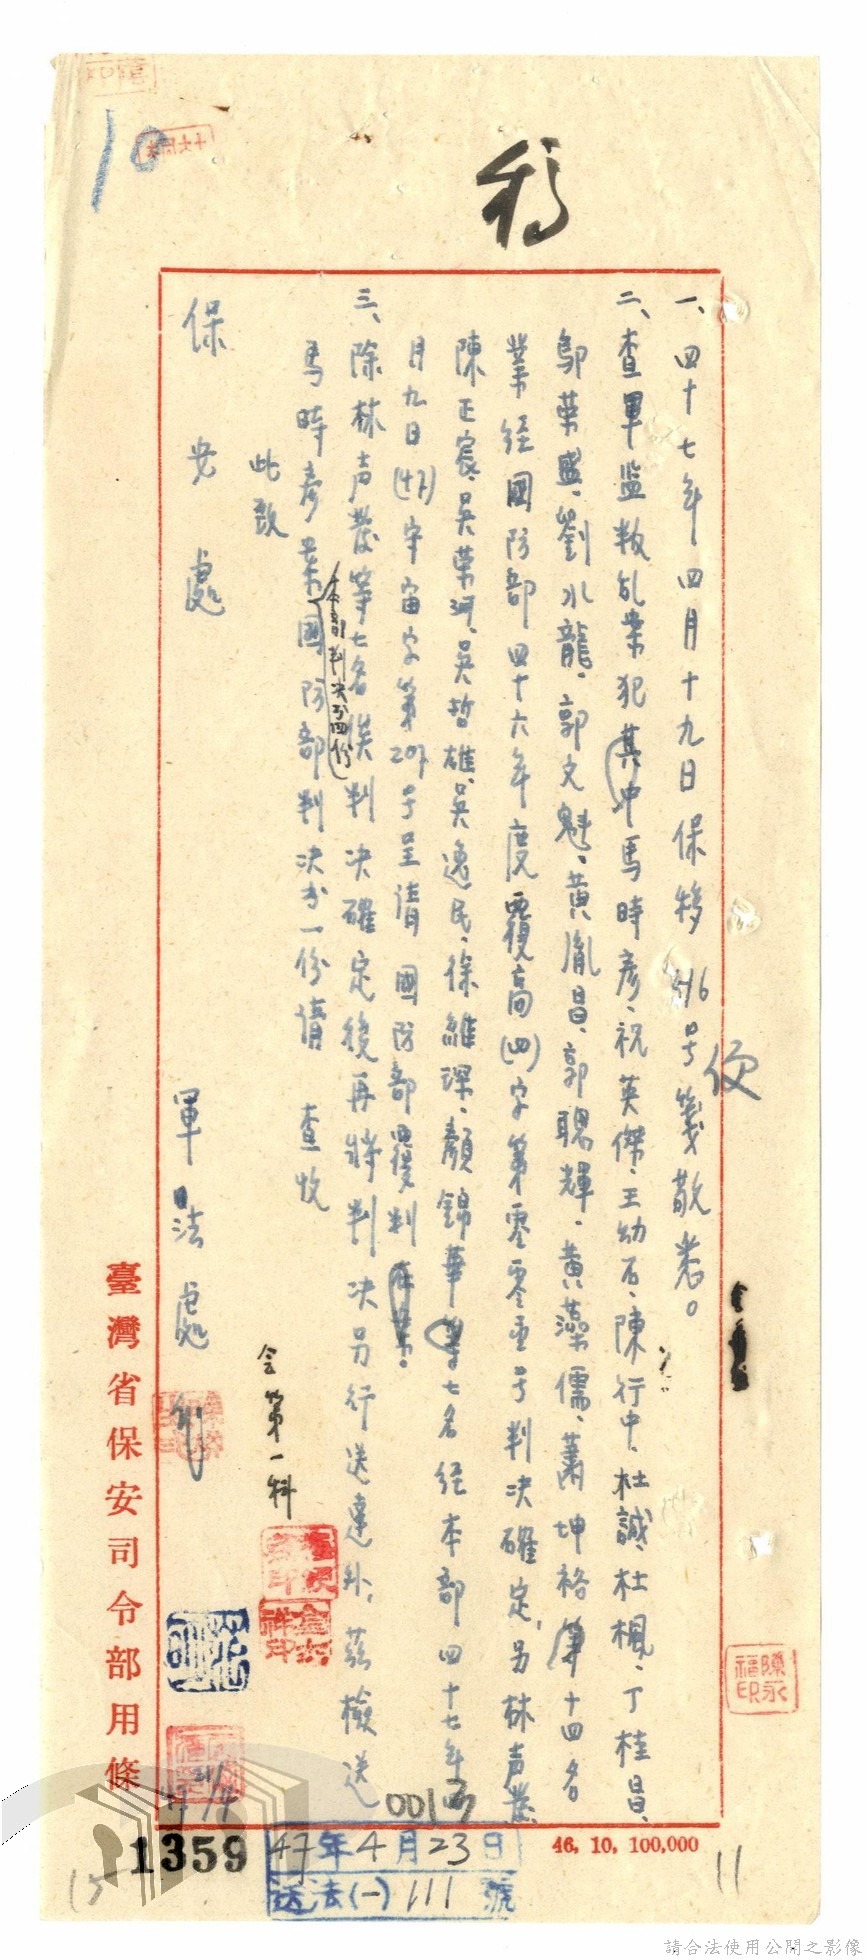 10
稿
便
一、四十七年四月十九日保移516号箋敬悉。
二、查軍監叛乱案犯其中馬時彥、祝英傑、王幼石、陳行中、杜誠、杜楓、丁桂昌、
鄔荣盛、劉水龍、郭文魁、黃胤昌、郭聰輝、黃藻儒、蕭坤裕等十四名
業経國防部四十六年度覆高(四)字第零零壹号判决確定,另林声發、
陳正宸、吳荣河、吳哲雄、吳逸民、徐維琛、顏錦華等七名経本部四十七年四
月九日(47)宇宙字第207号呈請國防部覆判
三、除林声發等七名俟判决確定後再將判决另行送達外,茲檢送
本部判决書四份
馬時彥案國防部判决書一份請 查收
此致
保安處
軍法處
会第一科
21/4
臺灣省保安司令部用條
陳永福印
0013
47年4月23日
送法(一)111號
1359
46, 10, 100,000
11
15
請合法使用公開之影像